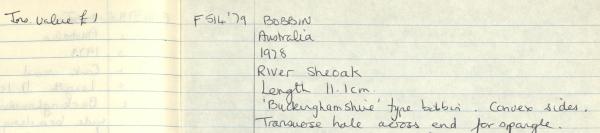 Ins. value £1 F514'79 BOBBIN
Australia
1978
River Sheoak
Length 11.1cm
'Buckinghamshire' type bobbin. Convex sides.
Transverse hole across end for spangle.